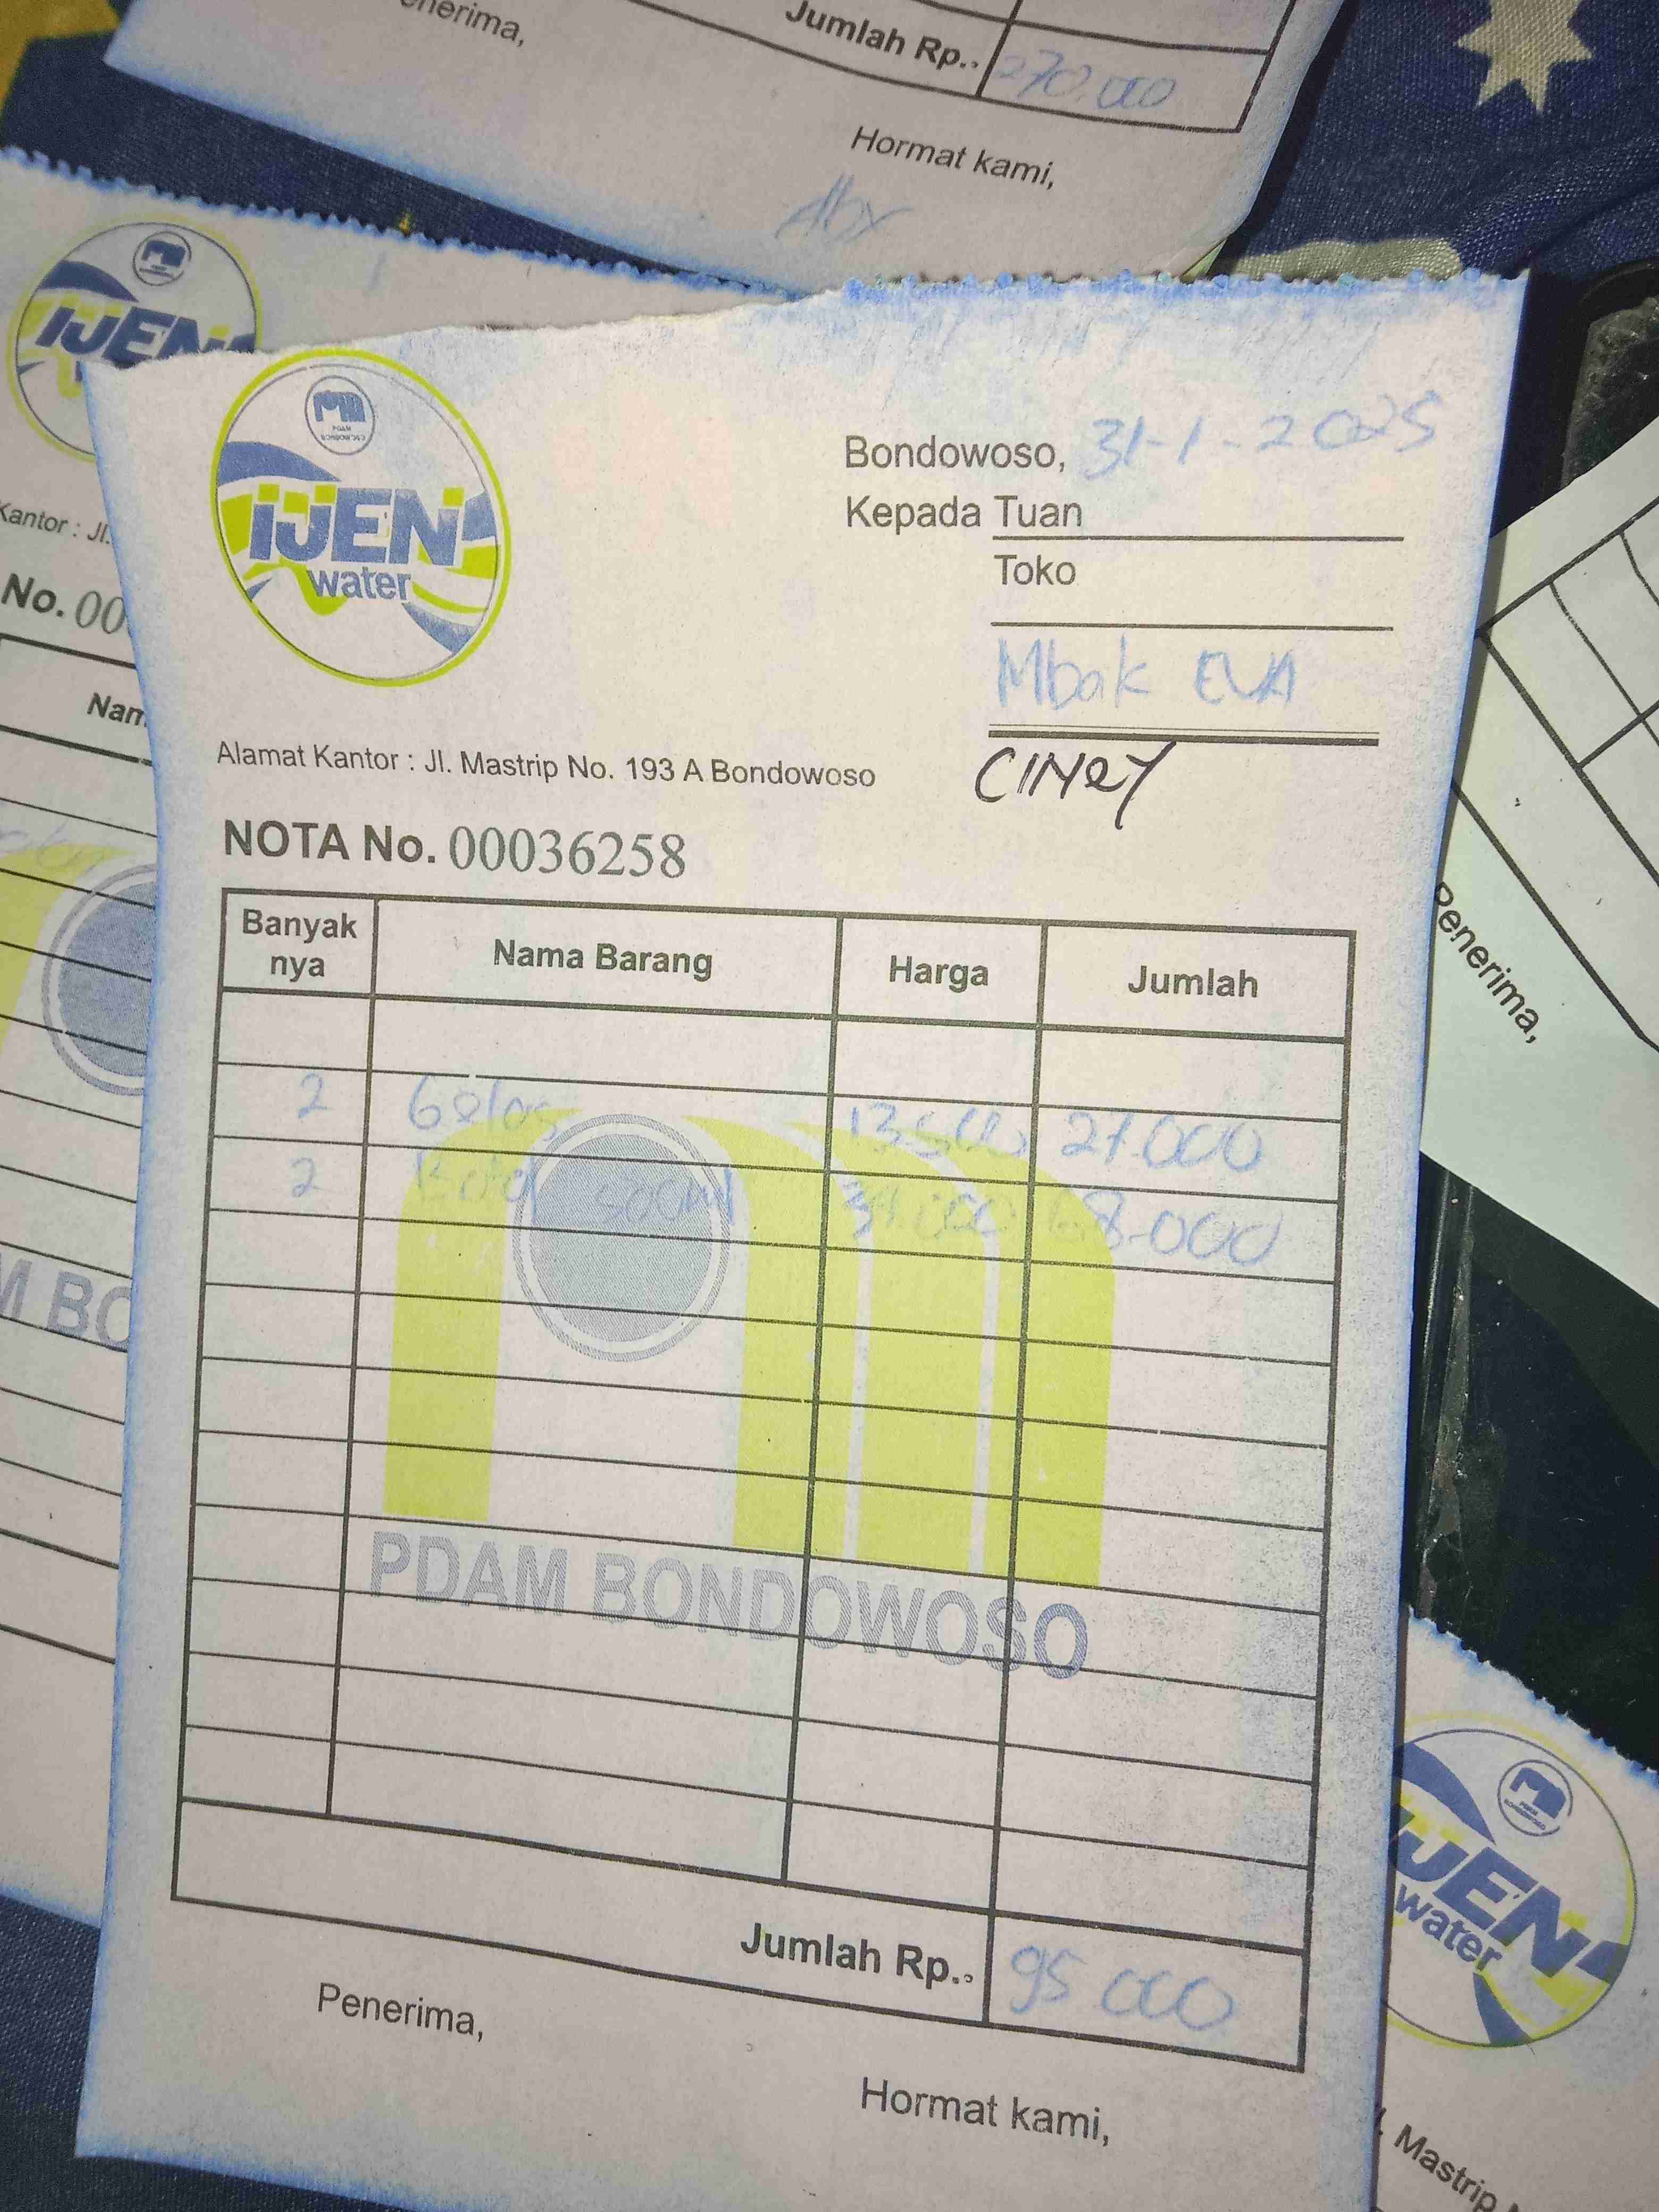 enerima,
Jumlah Rp..
270.000
Hormat kami,
IJEN
Kantor : Jl.
No. 00
Nam
M BO
PDAM
BONDOWOSO
IJEN
water
Bondowoso, 31-1-2025
Kepada Tuan
Toko
Mbak EVA
Alamat Kantor : Jl. Mastrip No. 193 A Bondowoso
NOTA No. 00036258
Banyak nya Nama Barang Harga Jumlah
2 Gelas 13.500 27.000
2 Botol 500ml 34.000 68.000
PDAM BONDOWOSO
Jumlah Rp.. 95 000
Penerima,
Hormat kami,
Penerima,
IJEN
water
. Mastrip